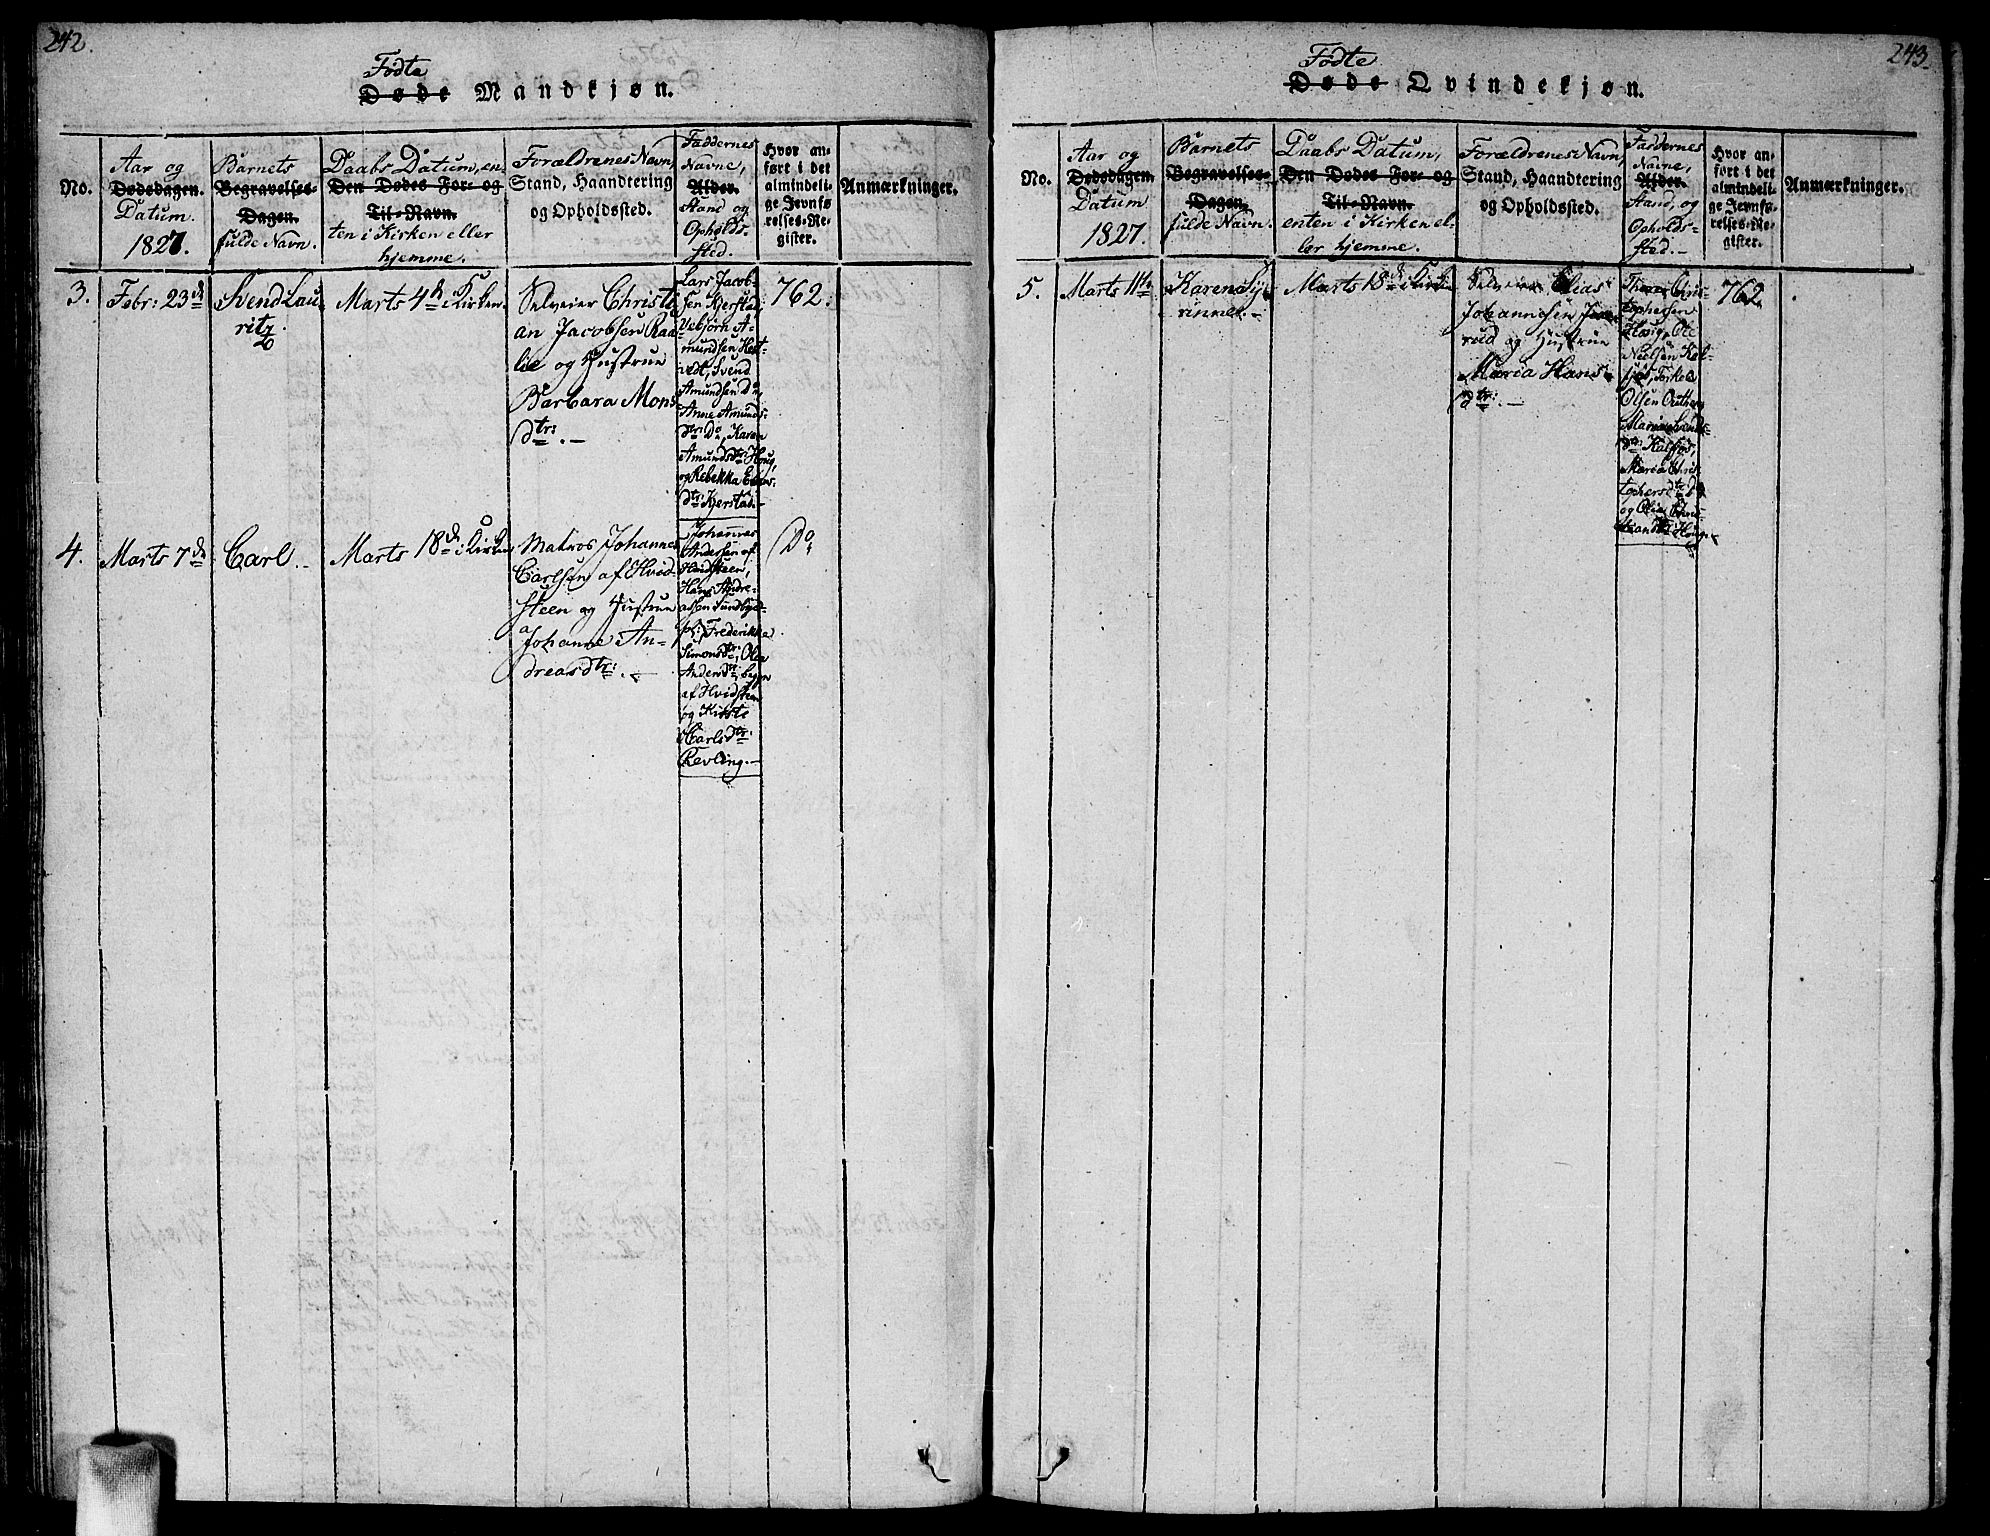 242.
Födte
Døde Mandkjøn.
No.
Aar og
Dødsdagen.
Datum
1827.
Barnets
Begravelses-
Dagen.
fulde Navn.
Daabs Datum, en-
Den Dødes For- og
Til-Navn.
ten i Kirken eller
hjemme.
Forældrenes Navn,
Stand, Haandtering
og Opholdssted.
Faddernes
Navne,
Alder.
Stand og
Opholds-
sted.
Hvor an-
ført i det
almindeli-
ge Jevnfø-
relses-Re-
gister.
Anmærkninger.
3.
Febr: 23de
Svend Lau-
ritz.
Marts 4de i Kirken.
Selveier Christi-
an Jacobsen Raa-
lie og Hustrue
Barbara Mons
dtr: . –
Lars Jacob-
sen Kjerstad,
Vebjørn A-
mundsen
vedt, Svend
Amundsen Do,
Anne Amunds-
dtr: Do, Karen
Amundsdtr: Houg,
og Rebekka
dtr: Kjerstad. –
762.
4.
Marts 7de
Carl. –
Marts 18de i Kirken
Matros Johannes
Carlsen af Hvid-
steen og Hustrue
Johanne An-
dreasdtr: . –
Johannes
Andersen af
Hvidsteen,
Hans Andre-
assen Sundbye,
Frederikke
Simonsdtr:, Olea
Andersdtr:, begge
af Hvidsteen
og Kirste
Carlsdtr:
Revling. –
Do
243.
Födte
Døde Qvindekjøn.
No.
Aar og
Dødsdagen.
Datum
1827.
Barnets
Begravelses-
Dagen.
fulde Navn.
Daabs Datum,
Den Dødes For- og
Til-Navn.
enten i Kirken el-
ler hjemme.
Forældrenes Navn,
Stand, Haandtering
og Opholdssted.
Faddernes
Navne,
Alder.
Stand, og
Opholds-
sted. –
Hvor an-
ført i det
almindeli-
ge Jevnfø-
relses-Re-
gister.
Anmærkninger.
5.
Marts 11te
Karen Sy-
rinne. –
Marts 18de i Kirken
Selveier Elias
Johannesen
rud og Hustrue
Maria Hans-
dtr: . –
Chris-
tophersen
Houg, Ole
Nielsen Kal-
sjøs, Torkel
Olsen
Marie
dtr: Kalsjøs,
Maria Chris-
tophersdtr: Do
og Olia Chri-
Houg. –
762.